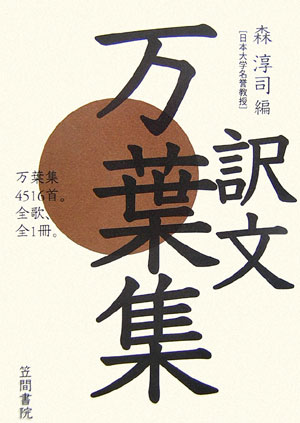 森 淳司 編
［日本大学名誉教授］
訳文
万葉集
万葉集
4516首。
全歌、
全1冊。
笠間書院